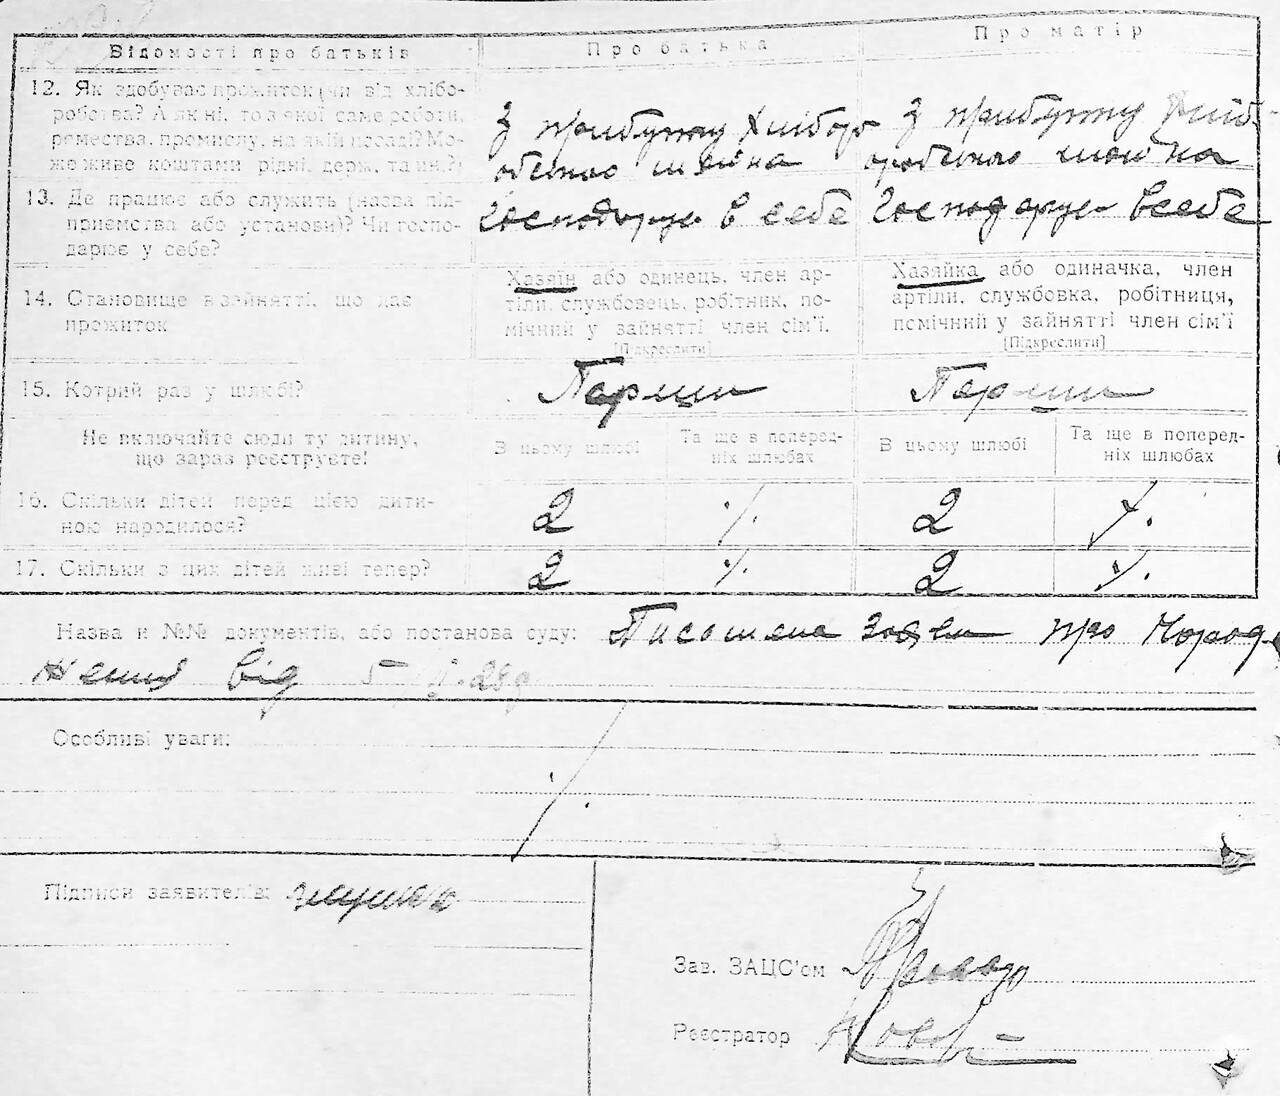 Відомості про батьків
Про батька
Про матір
12. Як здобуває прожиток (чи від хлібо-
робства? А як ні, то з якої саме роботи,
ремества, промислу, на якій посаді? Мо-
же живе коштами рідні, держ. та ин.?)
З прибутку хлібор
обства
З прибутку хліб-
оробства
13. Де працює або служить (назва під-
приємства або установи)? Чи госпо-
дарює у себе?
Господарює в себе
Господарює в себе
14. Становище в зайнятті, що дає
прожиток
Хазяїн або одинець, член ар-
тіли, службовець, робітник, по-
мічний у зайнятті член сім'ї.
[Підкреслити]
Хазяйка або одиначка, член
артіли, службовка, робітниця,
помічний у зайнятті член сім'ї
[Підкреслити]
15. Котрий раз у шлюбі?
Перший
Перший
Не включайте сюди ту дитину,
що зараз реєструєте!
В цьому шлюбі
Та ще в поперед-
ніх шлюбах
В цьому шлюбі
Та ще в поперед-
ніх шлюбах
16. Скільки дітей перед цією дити-
ною народилося?
2 ∙/. 2 ∙/.
17. Скільки з цих дітей живі тепер?
2 ∙/. 2 ∙/.
Назва и №№ документів, або постанова суду: про народ
ження від 5
Особливі уваги:
∙/.
Підписи заявителів:
Зав. ЗАЦС'ом
Реєстратор